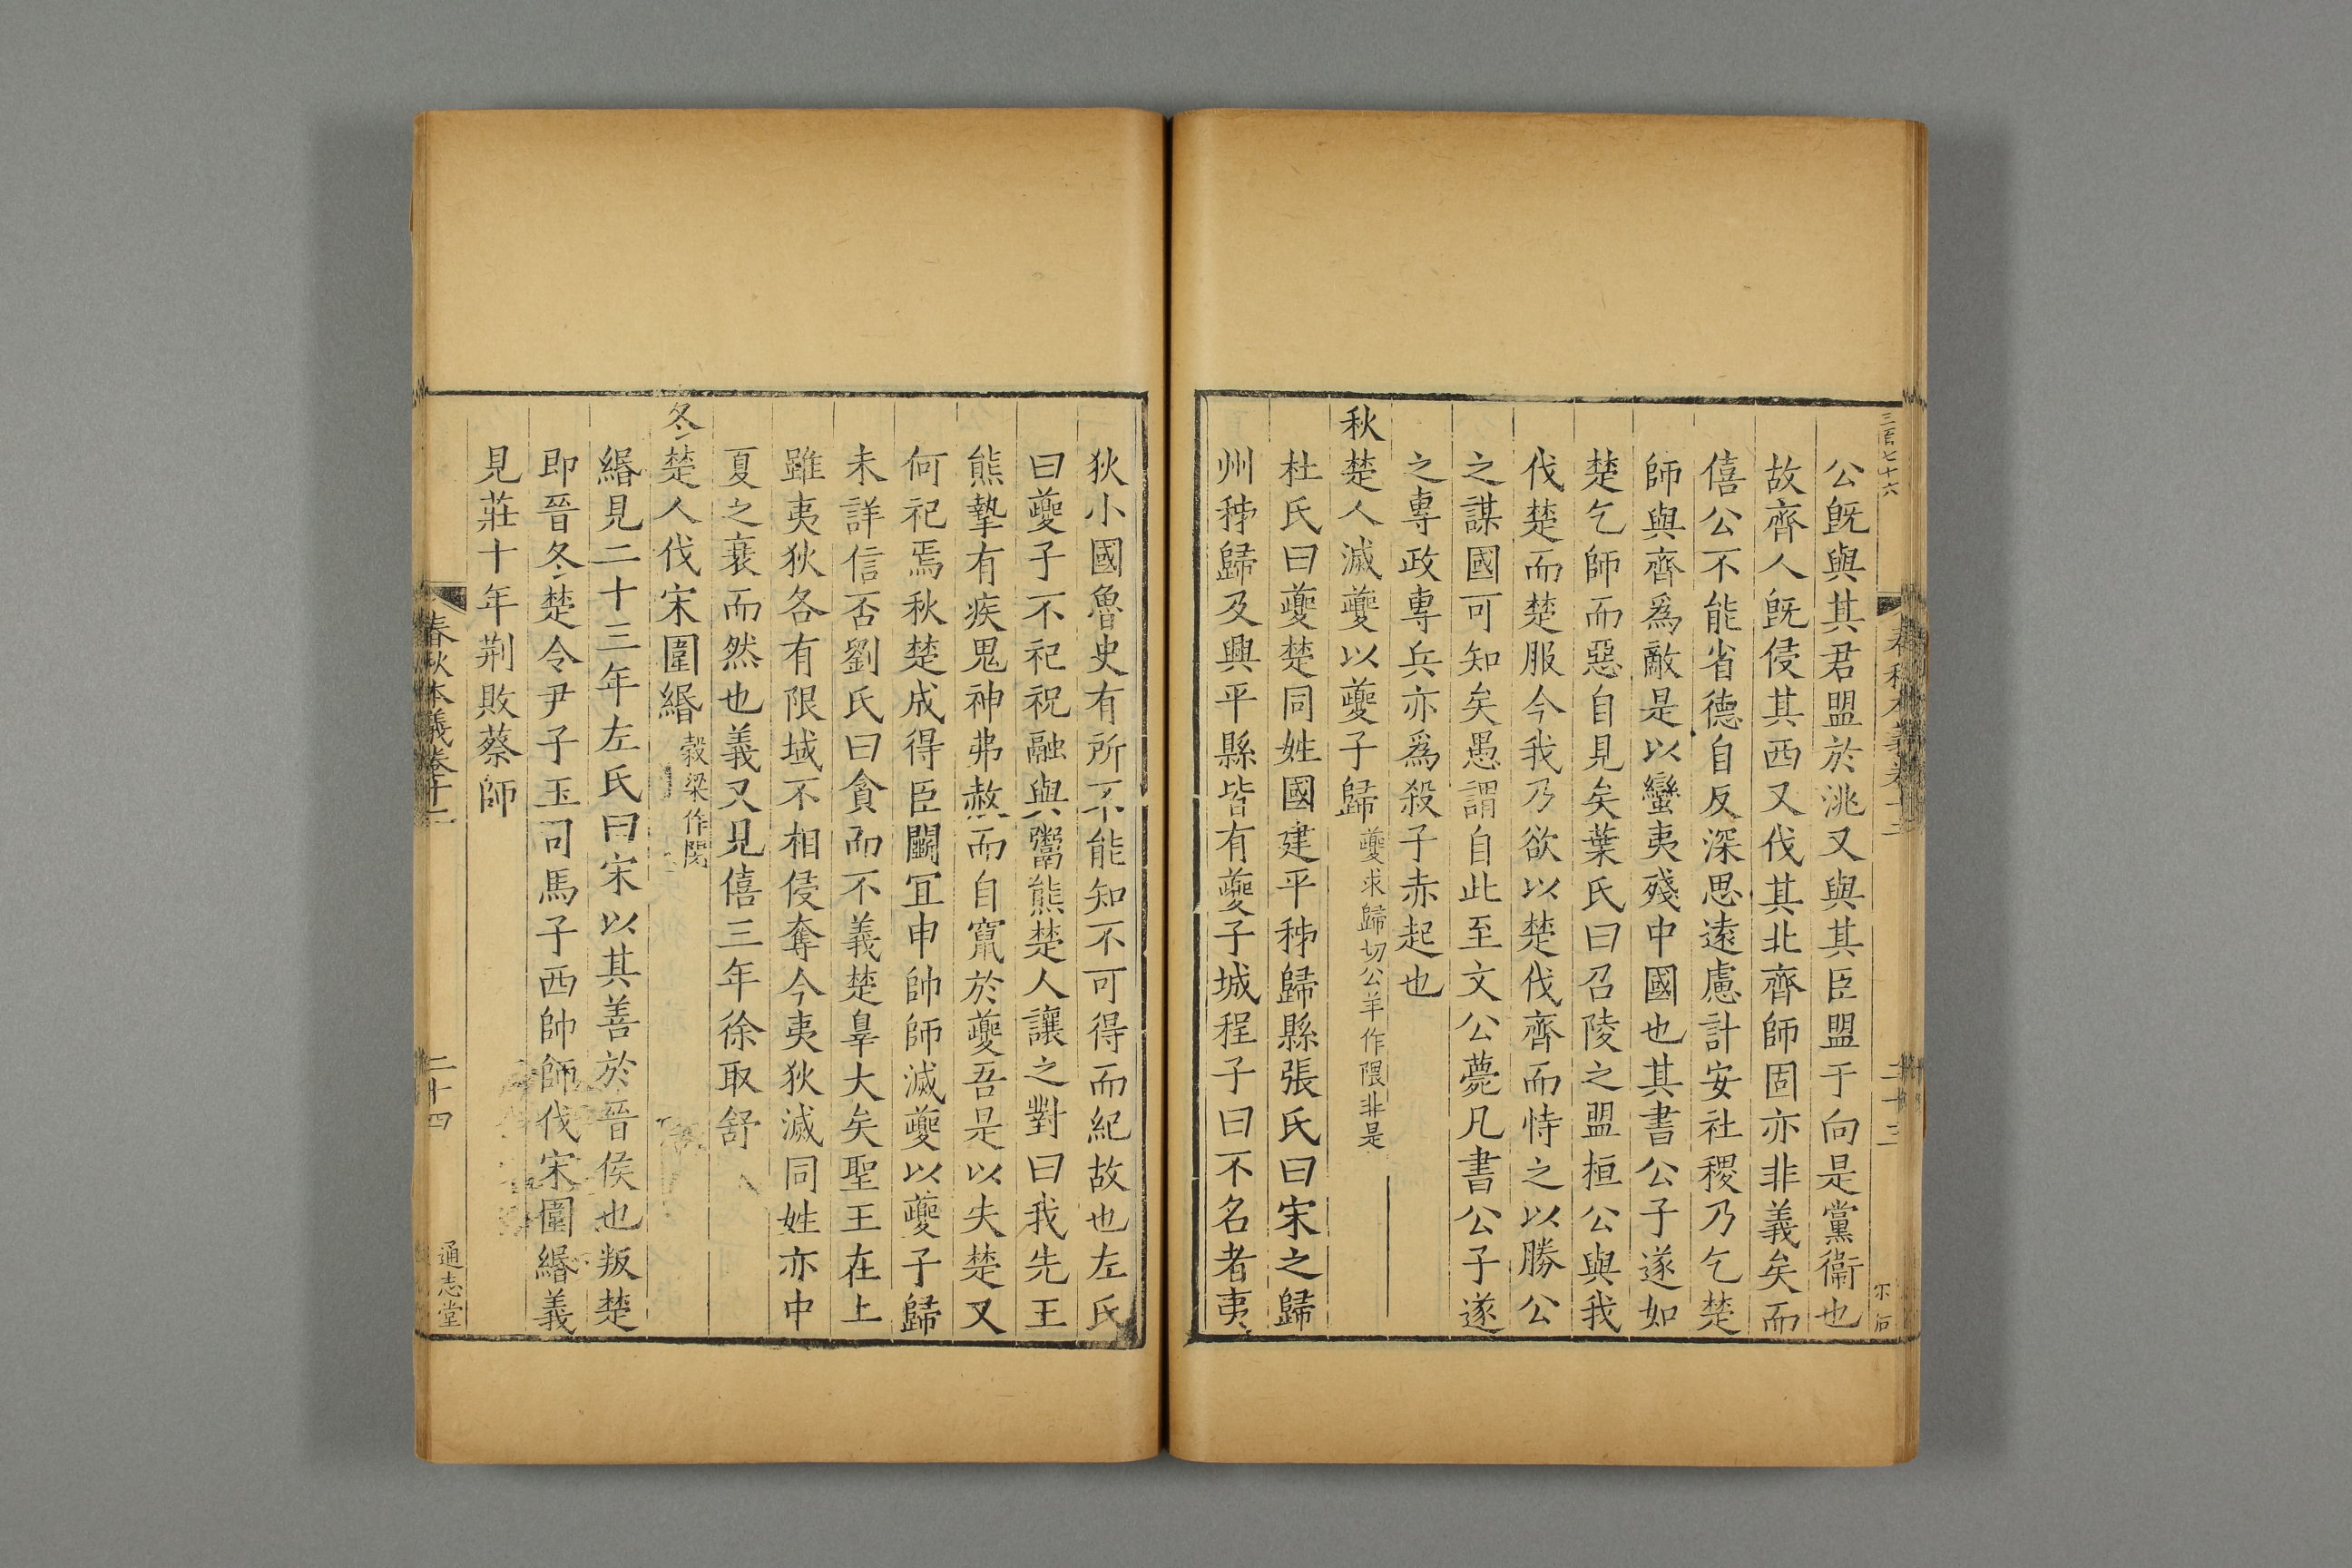 三百七十六
春秋本義卷十二
二十三
公既與其君盟於洮又與其臣盟于向是黨衞也
故齊人既侵其西又伐其北齊師固亦非義矣而
僖公不能省德自反深思遠慮計安社稷乃乞楚
師與齊爲敵是以蠻夷殘中國也其書公子遂如
楚乞師而惡自見矣葉氏曰召陵之盟桓公與我
伐楚而楚服今我乃欲以楚伐齊而恃之以勝公
之謀國可知矣愚謂自此至文公薨凡書公子遂
之專政專兵亦爲殺子赤起也
秋楚人滅夔以夔子歸夔求歸切公羊作隈非是
杜氏曰夔楚同姓國建平秭歸縣張氏曰宋之歸
州秭歸及興平縣皆有夔子城程子曰不名者夷
狄小國魯史有所不能知不可得而紀故也左氏
曰夔子不祀祝融與鬻熊楚人讓之對曰我先王
熊摯有疾鬼神弗赦而自竄於夔吾是以失楚又
何祀焉秋楚成得臣鬭宜申帥師滅夔以夔子歸
未詳信否劉氏曰貪而不義楚辠大矣聖王在上
雖夷狄各有限域不相侵奪今夷狄滅同姓亦中
夏之衰而然也義又見僖三年徐取舒
冬楚人伐宋圍緡穀梁作閔
緡見二十三年左氏曰宋以其善於晉侯也叛楚
即晉冬楚令尹子玉司馬子西帥師伐宋圍緡義
見莊十年荆敗蔡師
春秋本義卷十二
二十四
通志堂